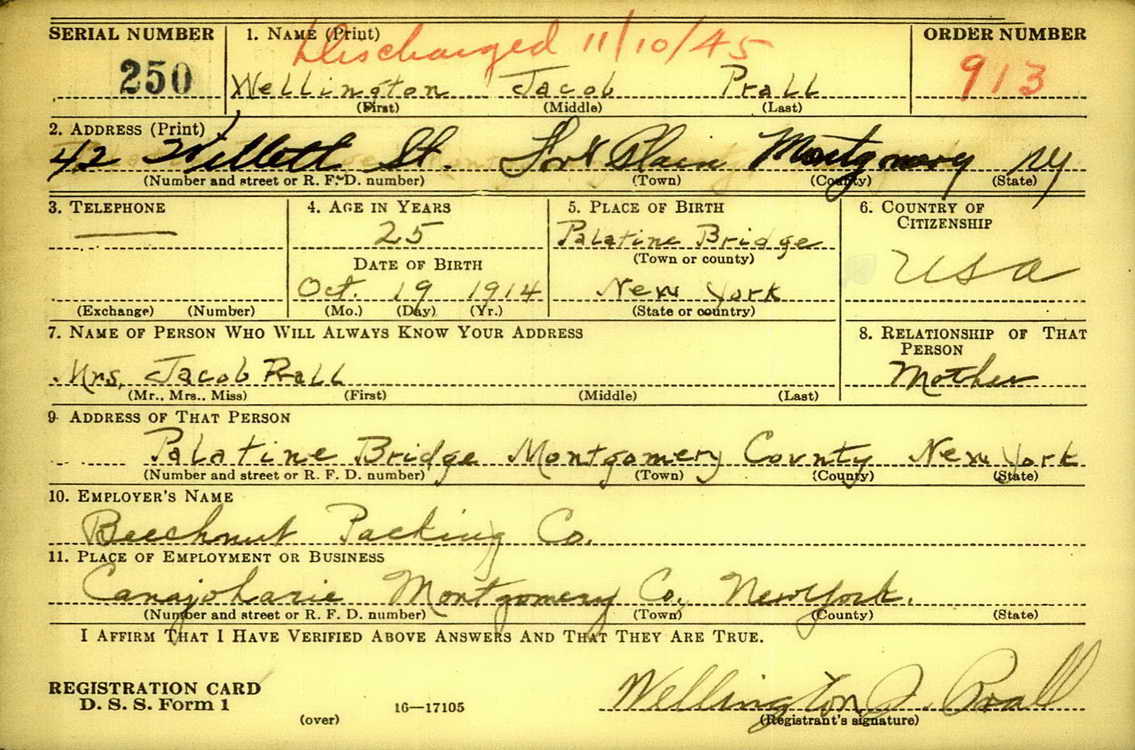 SERIAL NUMBER 1. NAME (Print) ORDER NUMBER
Discharged 11/10/45
250 Wellington Jacob Prall 913
(First) (Middle) (Last)
2. ADDRESS (Print)
42 Willett St. Fort Plain Montgomery NY
(Number and street or R. F. D. number) (Town) (County) (State)
3. TELEPHONE 4. AGE IN YEARS 5. PLACE OF BIRTH 6. COUNTRY OF
CITIZENSHIP
25 Palatine Bridge
(Town or county)
DATE OF BIRTH USA
Oct. 19 1914 New York
(Exchange) (Number) (Mo.) (Day) (Yr.) (State or country)
7. NAME OF PERSON WHO WILL ALWAYS KNOW YOUR ADDRESS 8. RELATIONSHIP OF THAT
PERSON
Mrs. Jacob Prall Mother
(Mr., Mrs., Miss) (First) (Middle) (Last)
9. ADDRESS OF THAT PERSON
Palatine Bridge Montgomery County New York
(Number and street or R. F. D. number) (Town) (County) (State)
10. EMPLOYER'S NAME
Beechnut Packing Co.
11. PLACE OF EMPLOYMENT OR BUSINESS
Canajoharie Montgomery Co., New York.
(Number and street or R. F. D. number) (Town) (County) (State)
I AFFIRM THAT I HAVE VERIFIED ABOVE ANSWERS AND THAT THEY ARE TRUE.
REGISTRATION CARD
D. S. S. Form 1 Wellington J. Prall
(over) 16—17105 (Registrant's signature)